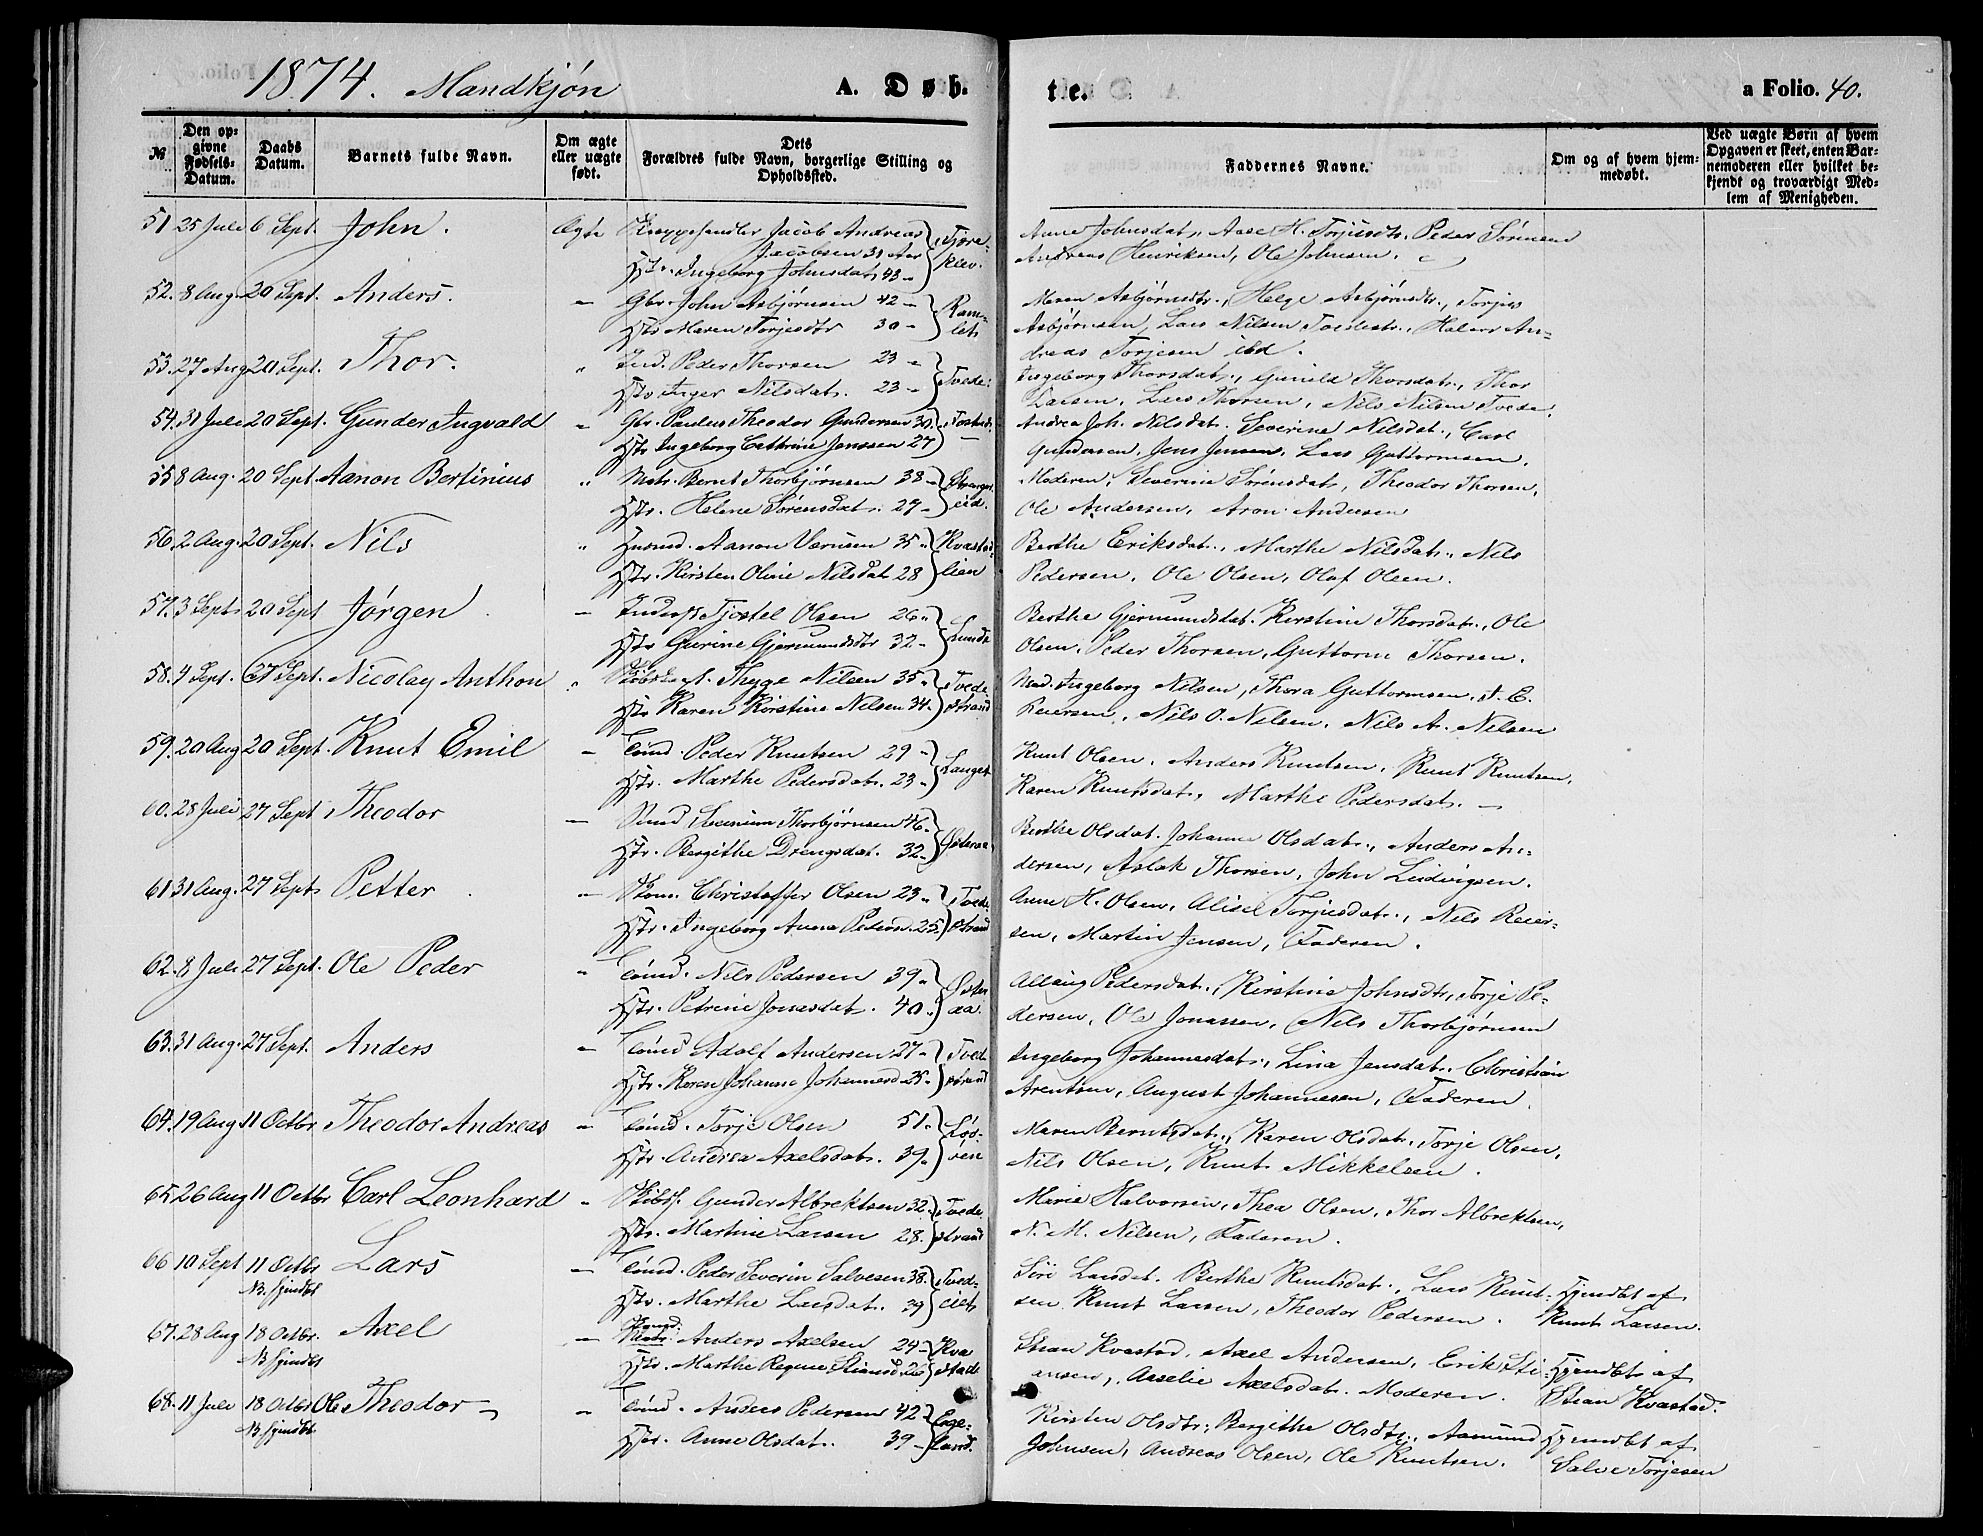 1874. Mandkjøn
A. Døb-
te.
a Folio. 40.
№
Den op-
givne
Fødsels-
Datum.
Daabs
Datum.
Barnets fulde Navn.
Om ægte
eller uægte
født.
Dets
Forældres fulde Navn, borgerlige Stilling og
Opholdssted.
Faddernes Navne.
Om og af hvem hjem-
medøbt.
Ved uægte Børn af hvem
Opgaven er skeet, enten Bar-
nemoderen eller hvilket be-
kjendt og troværdigt Med-
lem af Menigheden.
51 25 Juli 6 Sept. John. Ægte Jacob Andreas
Jacobsen 31 Aar
Hstr. Ingeborg Johnsdat. 43 "
Anne Johnsdat., Aase H. Torjusdtr. Peder Sörensen
Andreas Henriksen, Ole Johnsen.
52. 8 Aug. 20 Sept. Anders. " Gbr. John Asbjörnsen 42 "
Hstr Maren Torjesdtr 30 " Ramlet
Maren Asbjörnsdtr., Helge Asbjörnsdtr., Torjus
Asbjörnsen, Lars Nilsen Tvedestr., Halvor An-
dreas Torjesen ibd.
53. 27 Aug 20 Sept. Thor. " Ind. Peder Thorsen 23 "
Hstr Inger Nilsdat. 23 " Tvede.
Ingeborg Thorsdat., Gunild Thorsdat., Thor
Larsen, Lars Thorsen, Nils Nilsen Tvede.
54. 31 Juli 20 Sept. Gunder Ingvald " Gbr. Paulus Theodor Gundersen 30.
Hstr Ingeborg Cathrine Jenssen 27
Andrea Joh. Nilsdat. Severine Nilsdat., Carl
Gundersen, Jens Jensen, Lars Guttormsen.
55 8 Aug. 20 Sept. Aanon Bertinius " Matr. Bernt Thorbjörnsen 38 "
Hstr. Helene Sörensdat. 29 "
Moderen, Severine Sörensdat, Theodor Thorsen,
Ole Andersen, Aron Andersen
56. 2 Aug. 20 Sept. Nils " Husmd. Aanon 35 " Kvastad-
Hstr. Kirsten Oline Nilsdat 28 lien
Berthe Eriksdat., Marthe Nilsdat., Nils
Pedersen, Ole Olsen, Olaf Olsen.
57. 3 Sept. 20 Sept Jörgen " Tjöstel Olsen 26 "
Hstr Gurine Gjermundsdtr 32 " Lunde
Berthe Gjermundsdat. Kirstine Thorsdat., Ole
Olsen, Peder Thorsen, Guttorm Thorsen.
58. 4 Sept. 27 Sept. Nicolay Anthon " Thyge Nilsen 35 " Tvede-
Hstr Karen Kirstine Nilsen 34. strand
Mad. Ingeborg Nilsen, Thora Guttormsen, A. E.
Reiersen, Nils O. Nilsen, Nils A. Nilsen
59. 20 Aug 20 Sept. Knut Emil " Sömd. Peder Knutsen 29 "
Hstr. Marthe Pedersdat. 23 "
Knut Olsen, Anders Knutsen, Knut Knutsen,
Karen Knutsdat., Marthe Pedersdat.
60. 28 Juli 27 Sept Theodor " Thorbjörnsen 46.
Hstr. Bergithe Drengsdat. 32 " Österaa
Berthe Olsdat. Johanne Olsdat., Anders An-
dersen, Aslak Thorsen, John Ludvigsen.
61 31 Aug. 27 Sept. Petter " Christoffer Olsen 23 " Tvede-
Hstr. Ingeborg Anna Peders. 25. strand
Anne H. Olsen, Alisel Torjusdat., Nils Reier-
sen, Martin Jensen, Faderen.
62. 8 Juli 27 Sept. Ole Peder " Sömd. Nils Pedersen 39 " Öster
Hstr. Petrine Jonasdat. 40 " aa
Pedersdat., Kirstine Johnsdtr, Torje Pe-
dersen, Ole Jonassen, Nils Thorbjörnsen
63. 31 Aug. 27 Sept. Anders " Sömd Adolf Andersen 27 " Tvede
Hstr. Karen Johanne Johannesd 25 " strand
Ingeborg Johannesdat., Lina Jensdat. Christian
Arentsen, August Johannesen, Faderen.
64. 19 Aug 11 Octbr Theodor Andreas " Sömd. Torje Olsen 51.
Hstr. Andrea Axelsdat. 39 "
Maren Berntsdat., Karen Olsdat., Torje Olsen,
Nils Olsen, Knut Mikkelsen.
65. 26 Aug 11 Octbr Carl Leonhard " Skibsf. Gunder Albrektsen 32. Tvede
Hstr. Martine Larsen 28. strand
Marie Halvorsen, Thea Olsen, Thor Albrektsen,
N. M. Nilsen, Faderen.
66 10 Sept 11 Octbr Lars " Sömd. Peder Severin Salvesen 38.
NB. hjmdbt Hstr. Marthe Larsdat. 39
Siri Larsdat. Berthe Knutsdat., Lars Knut- Hjmdbt af
sen. Knut Larsen, Theodor Pedersen. Knut Larsen.
67. 28 Aug 18 Octbr. Axel " Anders Axelsen 24 " Kva
NB hjmdbt Hstr. Marthe Regine Stiansd. 26 stad
Stian Kvastad, Axel Andersen, Erik Sti- Hjemdbt af
ansen, Asselie Axelsdat. Moderen. Stian Kvastad.
68. 11 Juli 18 Octbr Ole Theodor " Sömd. Anders Pedersen 42
NB. hjmdbt. Hstr. Anne Olsdat. 39 " land.
Kirsten Olsdtr. Bergithe Olsdtr, Aamund Hjemdbt af
Johnsen, Andreas Olsen, Ole Knutsen. Salve Torjesen